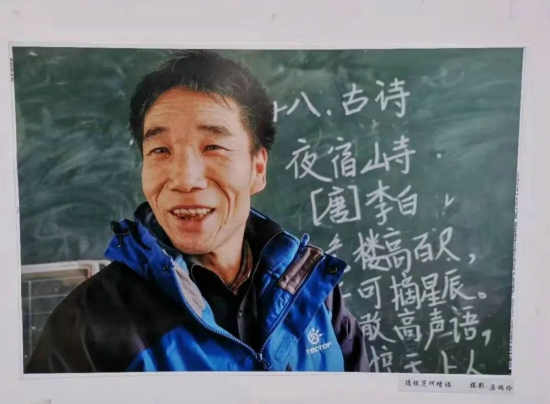 十八.古诗
夜宿山寺
[唐]李白
楼高百尺,
可摘星辰。
敢高声语,
惊天上人
TECTOP
摄影